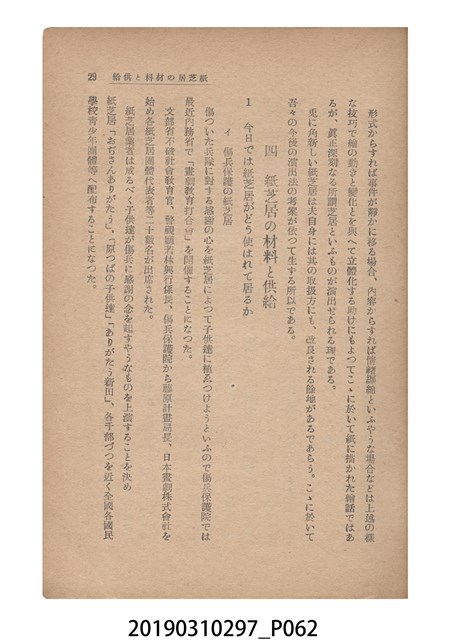 紙芝居の材料と供給 29
形式からすれば事件が靜かに移る場合、內容からすれば情緖纒綿といふやうな場合などは上述の樣
な技巧で繪の動きと變化とを與へて立體化する助けにもよつてこゝに於いて紙に描かれた繪話ではあ
るが、眞正深刻なる所謂芝居といふものが演出せられる理である。
兎に角新しい紙芝居は夫自身には其の取扱方にも、改良される餘地があるであらう。こゝに於いて
吾々の今後の演出法の考案が依つて生ずる所以である。
四 紙芝居の材料と供給
1 今日では紙芝居がどう使はれて居るか
イ 傷兵保護の紙芝居
傷ついた兵隊に對する感謝の心を紙芝居によつて子供達に植ゑつけようといふので傷兵保護院では
最近內務省で「畫劇敎育打合會」を開催することになつた。
文部省不破社會敎育官、警視廳若林興行係長、傷兵保護院から藤原計畫局長、日本畫劇株式會社を
始め各紙芝居團體代表者等二十數名が出席された。
紙芝居業者は成るべく子供達が傷兵に感謝の念を起すやうなものを上演することを決め
紙芝居「おぢさんありがたう」、「原つぱの子供達」「ありがたう新田」、各千部づつを近く全國各國民
學校靑少年團體等へ配布することになつた。
20190310297_P062